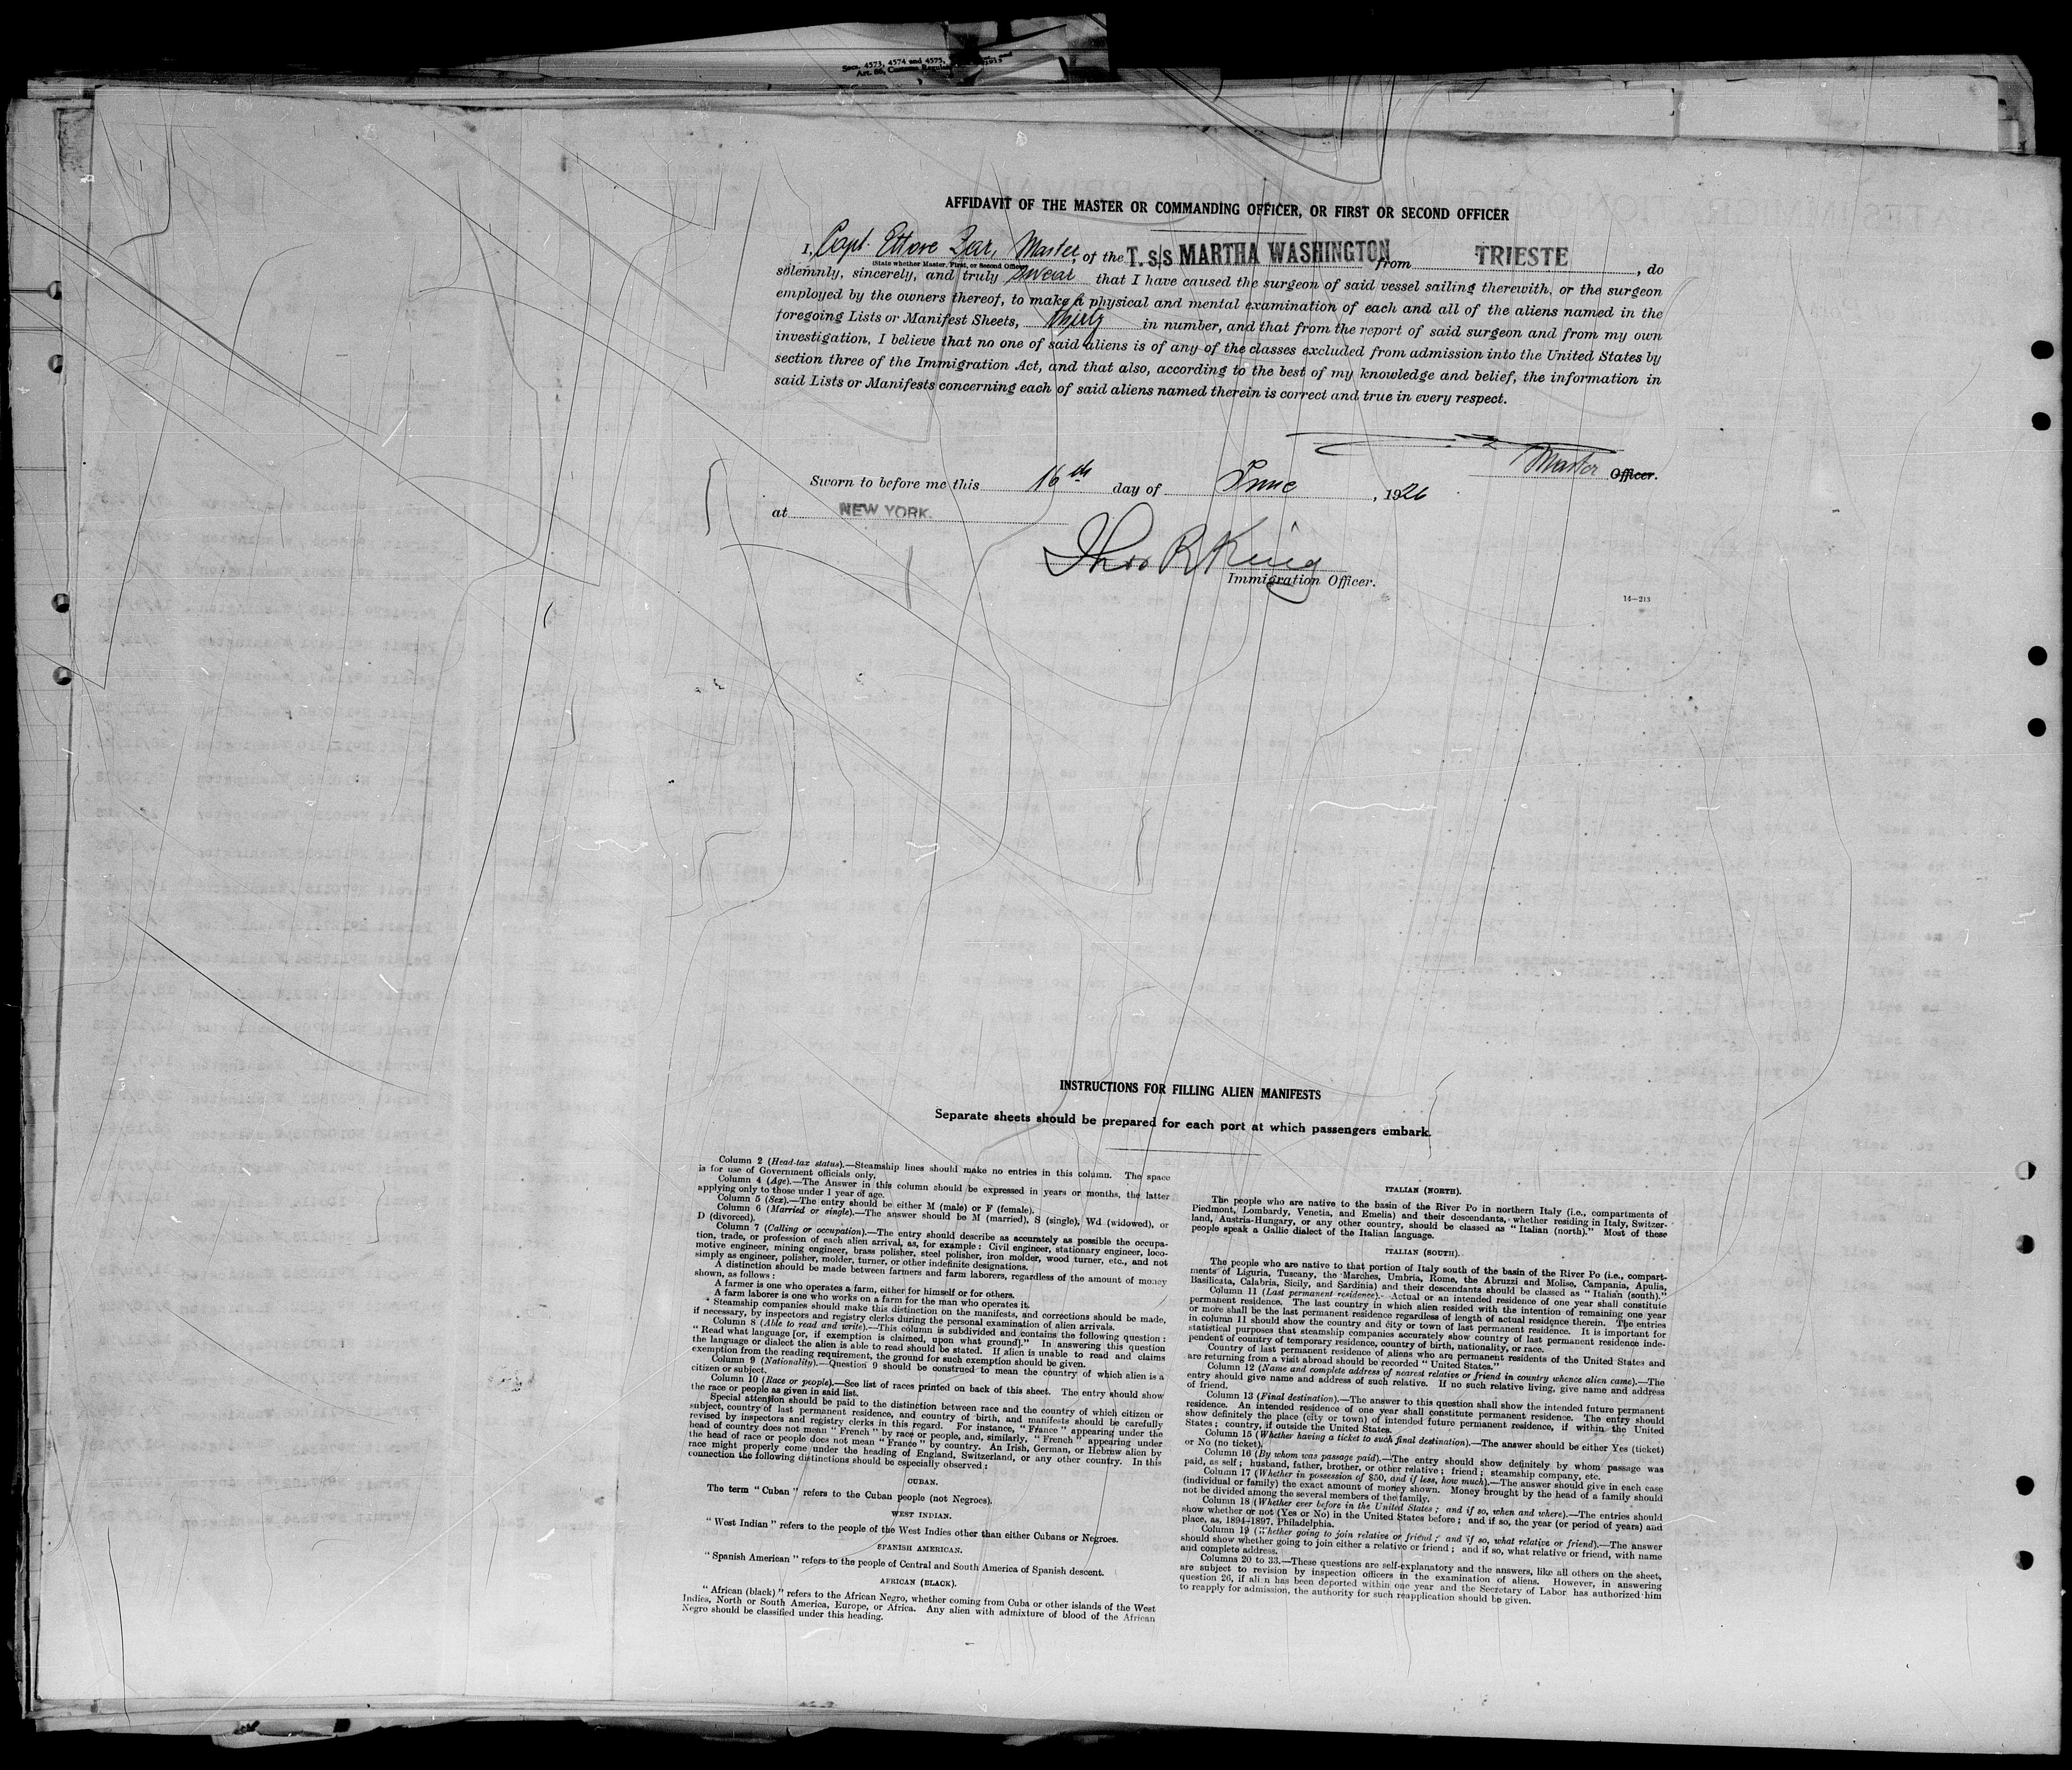 Secs. 4573, 4574 and 4575,
AFFIDAVIT OF THE MASTER OR COMMANDING OFFICER, OR FIRST OR SECOND OFFICER
I, Capt. Ettore Zar, Master, of the T. s/s MARTHA WASHINGTON from TRIESTE, do
(State whether Master, First, or Second Officer)
solemnly, sincerely, and truly swear that I have caused the surgeon of said vessel sailing therewith, or the surgeon
employed by the owners thereof, to make a physical and mental examination of each and all of the aliens named in the
foregoing Lists or Manifest Sheets, thirty in number, and that from the report of said surgeon and from my own
investigation, I believe that no one of said aliens is of any of the classes excluded from admission into the United States by
section three of the Immigration Act, and that also, according to the best of my knowledge and belief, the information in
said Lists or Manifests concerning each of said aliens named therein is correct and true in every respect.
Master Officer.
Sworn to before me this 16th day of June, 1926
at NEW YORK.
Theo R King
Immigration Officer.
14—213
INSTRUCTIONS FOR FILLING ALIEN MANIFESTS
Separate sheets should be prepared for each port at which passengers embark.
Column 2 (Head-tax status).—Steamship lines should make no entries in this column. The space
is for use of Government officials only.
Column 4 (Age).—The Answer in this column should be expressed in years or months, the latter
applying only to those under 1 year of age.
Column 5 (Sex).—The entry should be either M (male) or F (female).
Column 6 (Married or single).—The answer should be M (married), S (single), Wd (widowed), or
D (divorced).
Column 7 (Calling or occupation).—The entry should describe as accurately as possible the occupa-
tion, trade, or profession of each alien arrival, as, for example: Civil engineer, stationary engineer, loco-
motive engineer, mining engineer, brass polisher, steel polisher, iron molder, wood turner, etc., and not
simply as engineer, polisher, molder, turner, or other indefinite designations.
A distinction should be made between farmers and farm laborers, regardless of the amount of money
shown, as follows:
A farmer is one who operates a farm, either for himself or for others.
A farm laborer is one who works on a farm for the man who operates it.
Steamship companies should make this distinction on the manifests, and corrections should be made,
if necessary, by inspectors and registry clerks during the personal examination of alien arrivals.
Column 8 (Able to read and write).—This column is subdivided and contains the following question:
"Read what language [or, if exemption is claimed, upon what ground]." In answering this question
the language or dialect the alien is able to read should be stated. If alien is unable to read and claims
exemption from the reading requirement, the ground for such exemption should be given.
Column 9 (Nationality).—Question 9 should be construed to mean the country of which alien is a
citizen or subject.
Column 10 (Race or people).—See list of races printed on back of this sheet. The entry should show
the race or people as given in said list.
Special attention should be paid to the distinction between race and the country of which citizen or
subject, country of last permanent residence, and country of birth, and manifests should be carefully
revised by inspectors and registry clerks in this regard. For instance, "France" appearing under the
head of country does not mean "French" by race or people, and, similarly, "French" appearing under
the head of race or people does not mean "France" by country. An Irish, German, or Hebrew alien by
race might properly come under the heading of England, Switzerland, or any other country. In this
connection the following distinctions should be especially observed:
CUBAN.
The term "Cuban" refers to the Cuban people (not Negroes).
WEST INDIAN.
"West Indian" refers to the people of the West Indies other than either Cubans or Negroes.
SPANISH AMERICAN.
"Spanish American" refers to the people of Central and South America of Spanish descent.
AFRICAN (BLACK).
"African (black)" refers to the African Negro, whether coming from Cuba or other islands of the West
Indies, North or South America, Europe, or Africa. Any alien with admixture of blood of the African
Negro should be classified under this heading.
ITALIAN (NORTH).
The people who are native to the basin of the River Po in northern Italy (i.e., compartments of
Piedmont, Lombardy, Venetia, and Emelia) and their descendants, whether residing in Italy, Switzer-
land, Austria-Hungary, or any other country, should be classed as "Italian (north)." Most of these
people speak a Gallic dialect of the Italian language.
ITALIAN (SOUTH).
The people who are native to that portion of Italy south of the basin of the River Po (i.e., compart-
ments of Liguria, Tuscany, the Marches, Umbria, Rome, the Abruzzi and Molise, Campania, Apulia,
Basilicata, Calabria, Sicily, and Sardinia) and their descendants should be classed as "Italian (south)."
Column 11 (Last permanent residence).—Actual or an intended residence of one year shall constitute
permanent residence. The last country in which alien resided with the intention of remaining one year
or more shall be the last permanent residence regardless of length of actual residence therein. The entries
in column 11 should show the country and city or town of last permanent residence. It is important for
statistical purposes that steamship companies accurately show country of last permanent residence inde-
pendent of country of temporary residence, country of birth, nationality, or race.
Country of last permanent residence of aliens who are permanent residents of the United States and
are returning from a visit abroad should be recorded "United States."
Column 12 (Name and complete address of nearest relative or friend in country whence alien came).—The
entry should give name and address of such relative. If no such relative living, give name and address
of friend.
Column 13 (Final destination).—The answer to this question shall show the intended future permanent
residence. An intended residence of one year shall constitute permanent residence. The entry should
show definitely the place (city or town) of intended future permanent residence, if within the United
States; country, if outside the United States.
Column 15 (Whether having a ticket to such final destination).—The answer should be either Yes (ticket)
or No (no ticket).
Column 16 (By whom was passage paid).—The entry should show definitely by whom passage was
paid, as self; husband, father, brother, or other relative; friend; steamship company, etc.
Column 17 (Whether in possession of $50, and if less, how much).—The answer should give in each case
(individual or family) the exact amount of money shown. Money brought by the head of a family should
not be divided among the several members of the family.
Column 18 (Whether ever before in the United States; and if so, when and where).—The entries should
show whether or not (Yes or No) in the United States before; and if so, the year (or period of years) and
place, as, 1894–1897, Philadelphia.
Column 19 (Whether going to join relative or friend; and if so, what relative or friend).—The answer
should show whether going to join either a relative or friend; and if so, what relative or friend, with name
and complete address.
Columns 20 to 33.—These questions are self-explanatory and the answers, like all others on the sheet,
are subject to revision by inspection officers in the examination of aliens. However, in answering
question 26, if alien has been deported within one year and the Secretary of Labor has authorized him
to reapply for admission, the authority for such reapplication should be given.